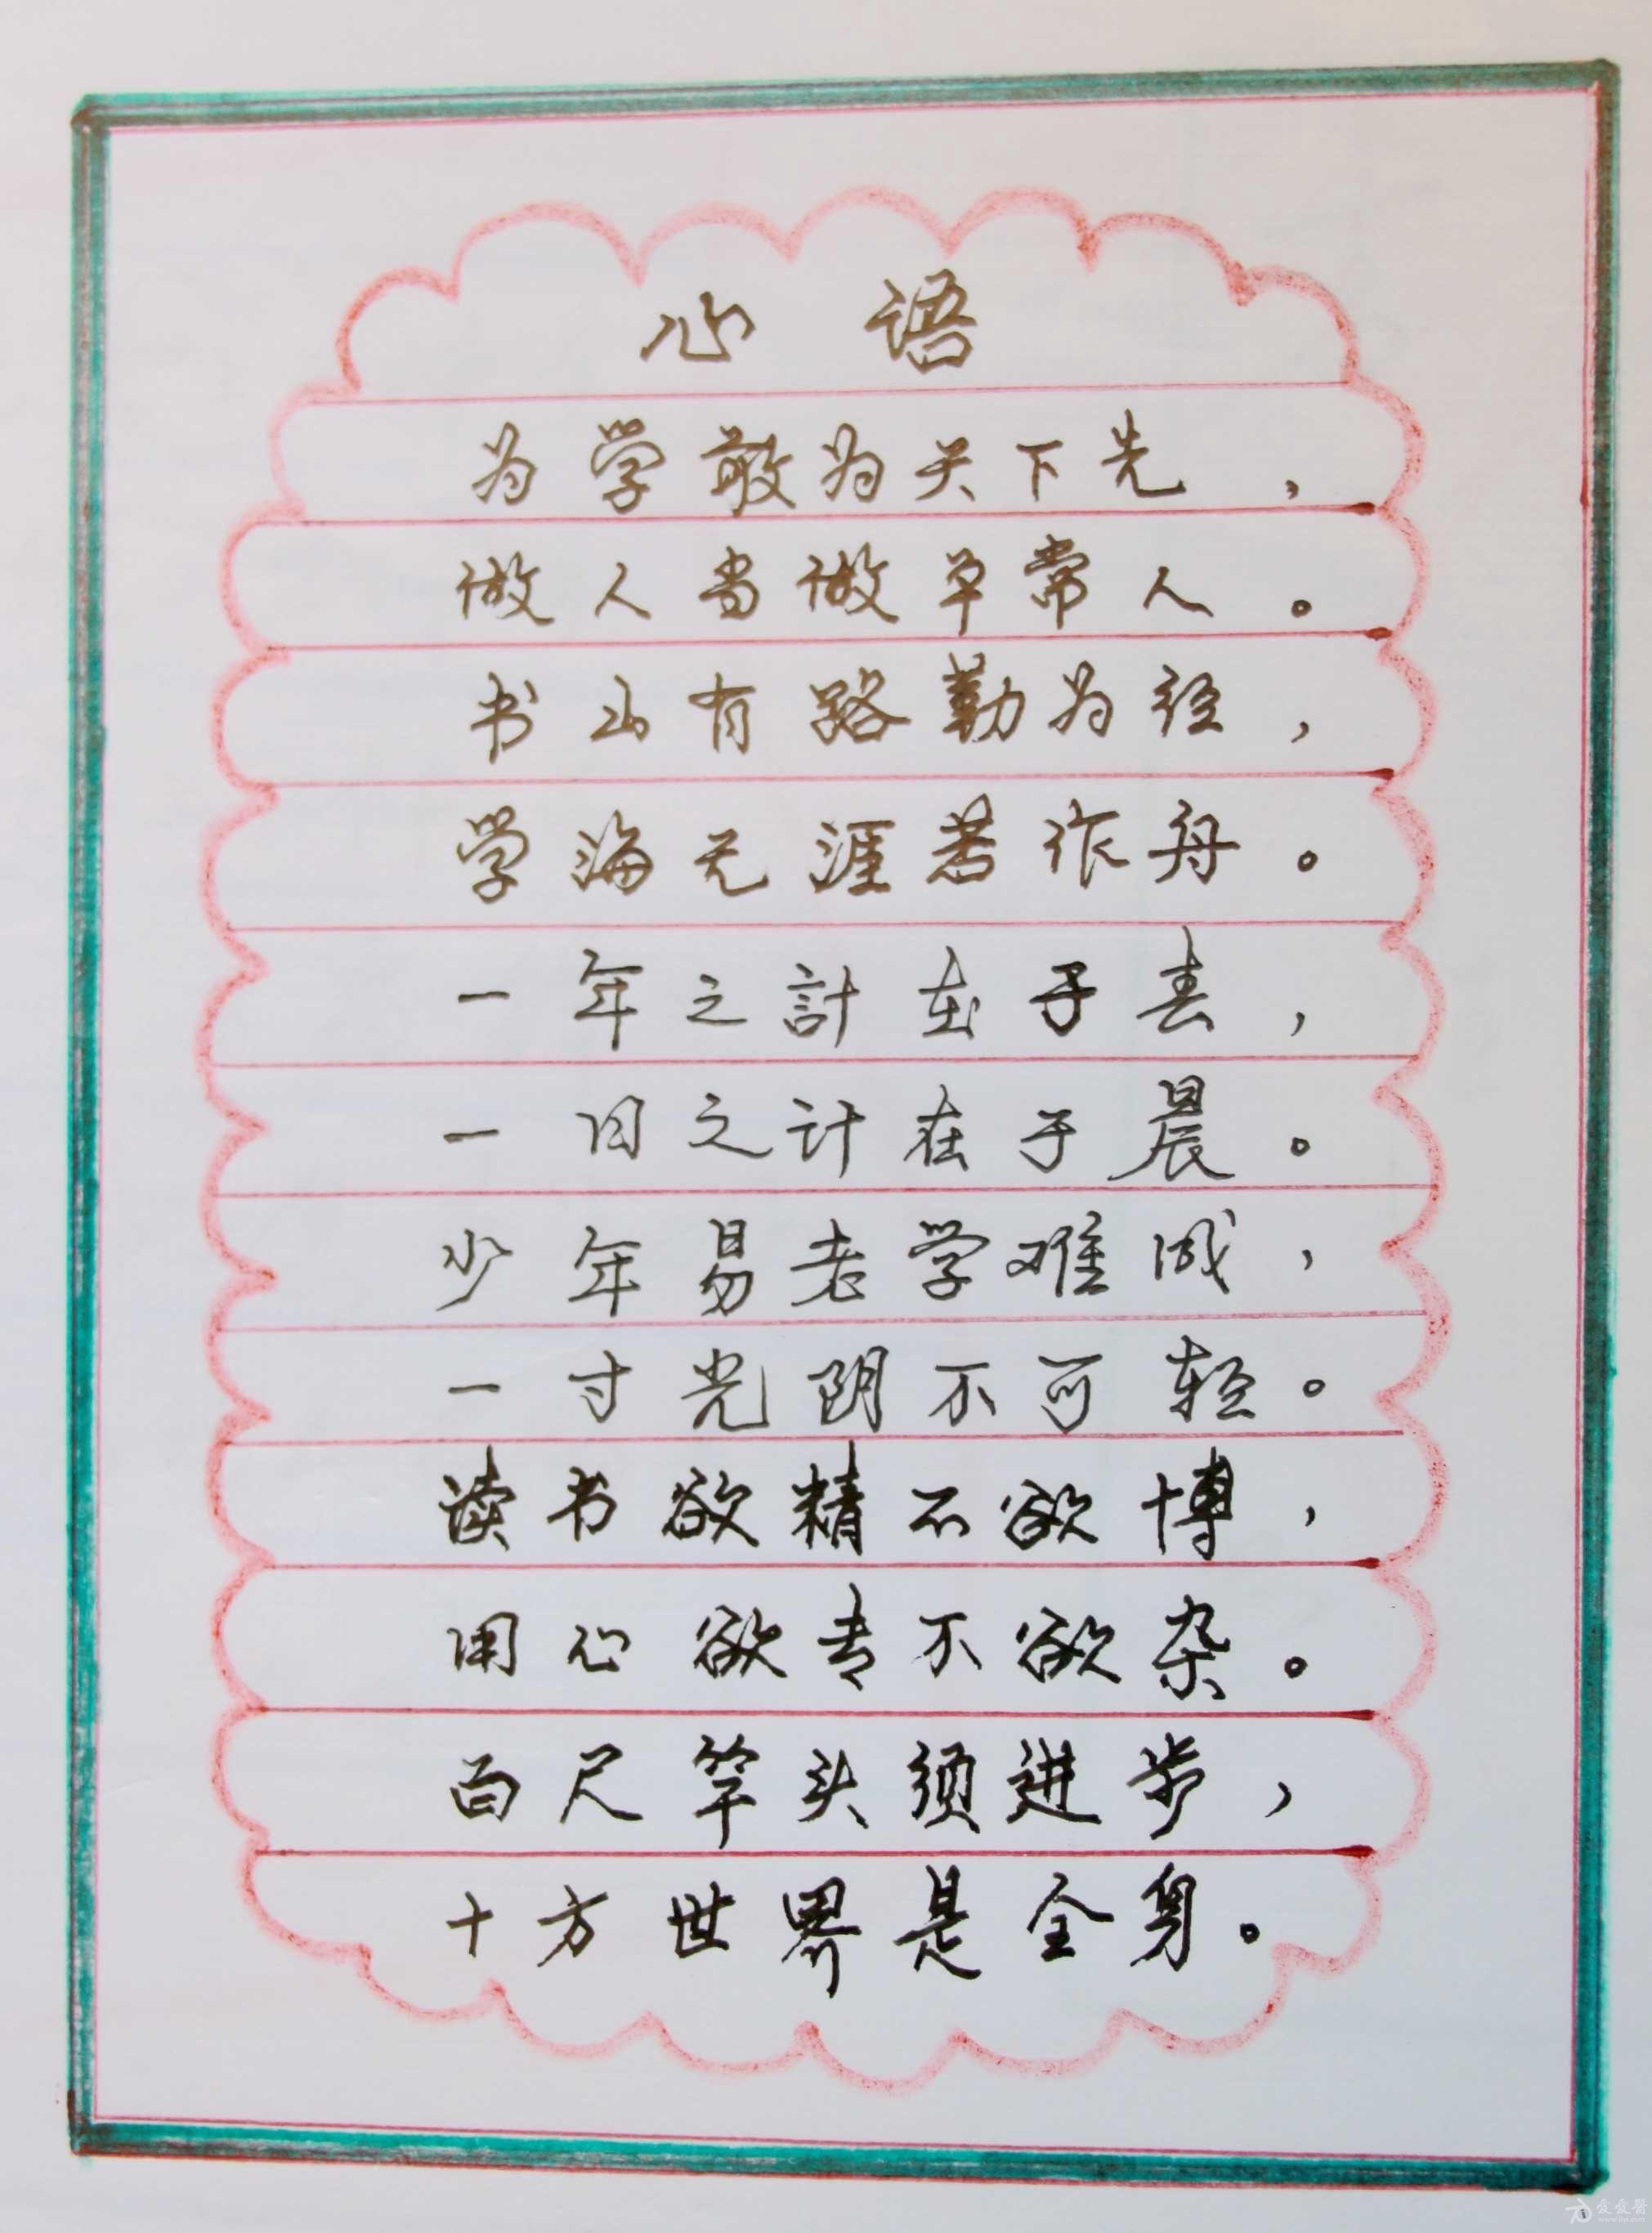 心语
为学敢为天下先，
做人当做平常人。
书山有路勤为径，
学海无涯苦作舟。
一年之計在于春，
一日之计在于晨。
少年易老学难成，
一寸光阴不可轻。
读书欲精不欲博，
用心欲专不欲杂。
百尺竿头须进步，
十方世界是全身。
爱爱醫